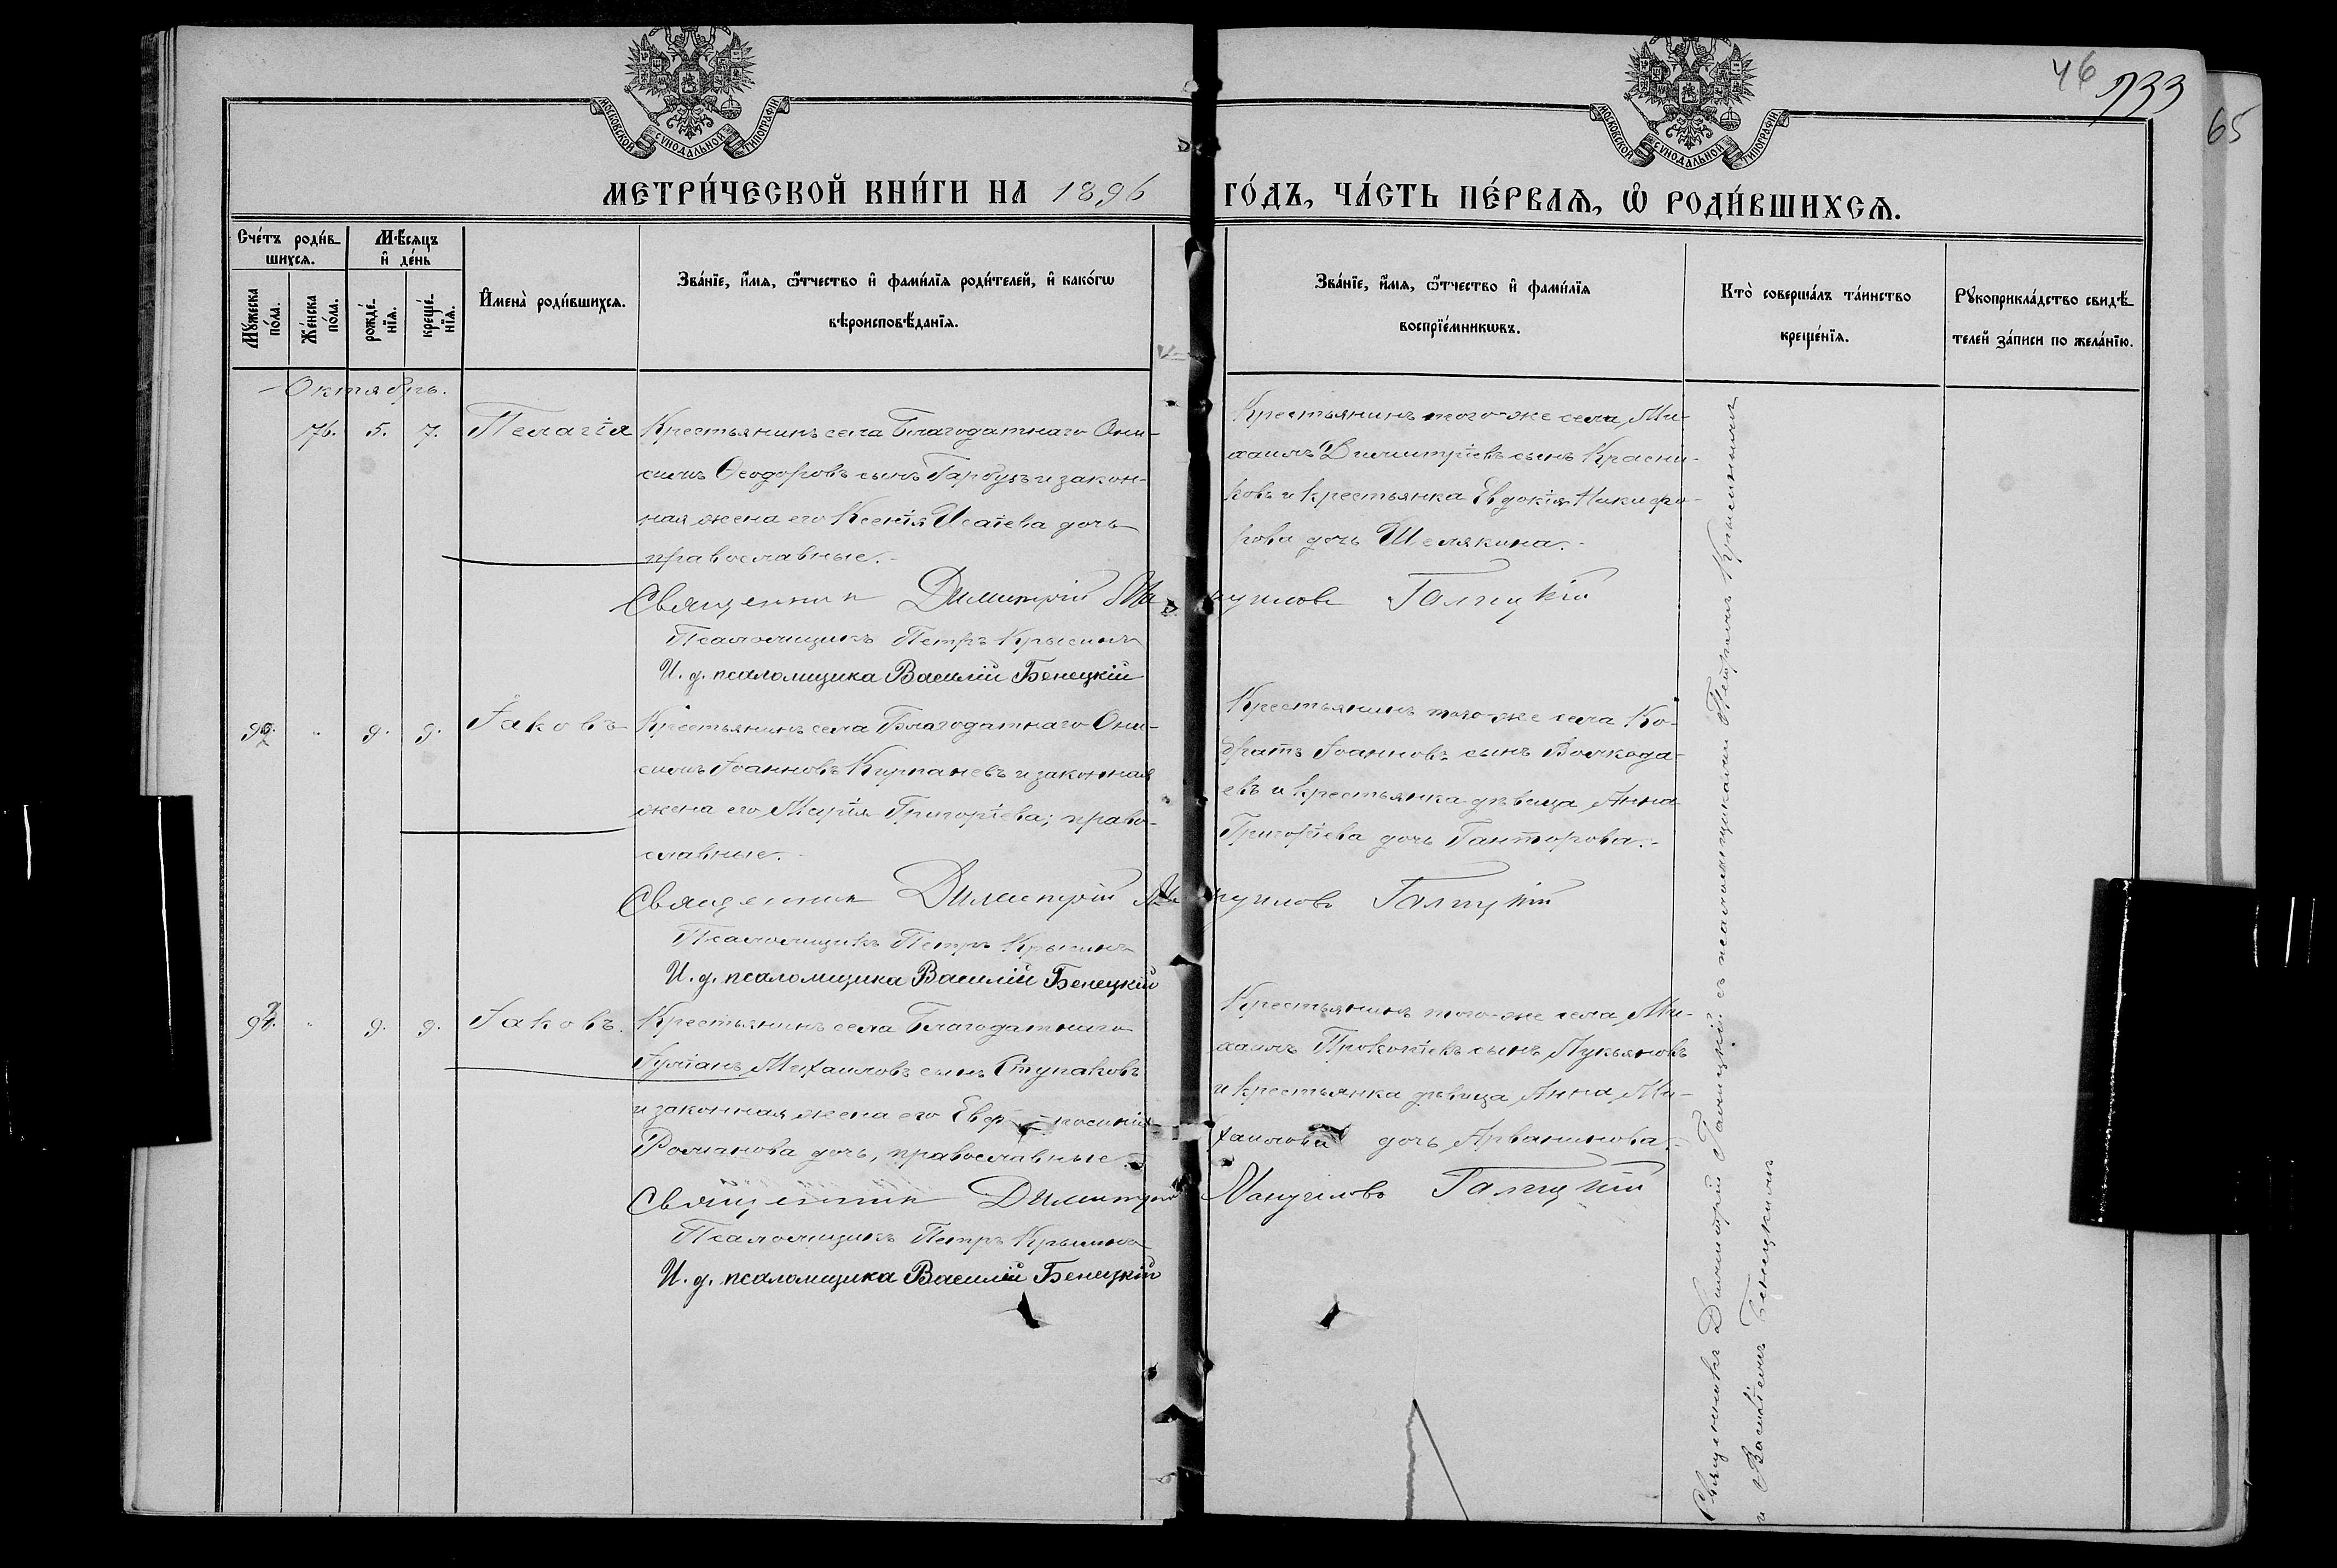 46 733
65
МОСКОВСКОЙ СУНОДАЛЬНОЙ ТИПОГРАФІИ
МОСКОВСКОЙ СУНОДАЛЬНОЙ ТИПОГРАФІИ
МЕТРИ́ЧЕСКОЙ КНИ́ГИ НА 1896 ГО́ДЪ, ЧА́СТЬ ПЕ́РВАѦ, Ѡ҆ РОДИ́ВШИХСѦ.
Сче́тъ роди́в-
шихсѧ.
Мѣ́сѧцъ
и҆ де́нь
Мꙋ́жеска
по́ла.
Же́нска
по́ла.
рожде́-
нїѧ.
креще́-
нїѧ.
И҆мена̀ роди́вшихсѧ.
Зва́нїе, и҆́мѧ, ѻ҆́тчество и҆ фами́лїѧ роди́телей, и҆ како́гѡ
вѣроисповѣ́данїѧ.
Зва́нїе, и҆́мѧ, ѻ҆́тчество и҆ фами́лїѧ
воспрїе́мникѡвъ.
Кто̀ соверша́лъ та́инство
креще́нїѧ.
Рꙋкоприкла́дство свидѣ́-
телей за́писи по жела́нїю.
Октябрь.
76. 5. 7. Пелагія
Крестьянинъ села Благодатнаго Они-
симъ Ѳеодоровъ сынъ Гарбузъ и закон-
ная жена его Ксенія Исаіева дочь
православные.-
Крестьянинъ того-же села Ми-
хаилъ Димитріевъ сынъ Красни-
ковъ и крестьянка Евдокія Никифо-
рова дочь Шелякина.-
Священник Димитрій Мануилов Галицкій
Псаломщикъ Петръ Крысинъ
И. д. псаломщика Василій Бенецкій
" 9. 9. Іаковъ
Крестьянинъ села Благодатнаго Они-
симъ Іоанновъ Кирпаневъ и законная
жена его Марія Григоріева; право-
славные.-
Крестьянинъ того-же села Ко-
дратъ Іоанновъ сынъ Волкода-
евъ и крестьянка дѣвица Анна
Григоріева дочь Ганторова.-
Священник Димитрій Мануилов Галицкій
Псаломщикъ Петръ Крысинъ
И. д. псаломщика Василій Бенецкій
" 9. 9. Іаковъ.
Крестьянинъ села Благодатнаго
Іуліанъ Михаиловъ сынъ Ступаковъ
и законная жена его Евфросинія
Романова дочь, православные.
Крестьянинъ того-же села Ми-
хаилъ Прокопіевъ сынъ Лукьяновъ
и крестьянка дѣвица Анна Ми-
хаилова дочь
Священник Димитрій Мануилов Галицкій
Псаломщикъ Петръ Крысинъ
И. д. псаломщика Василій Бенецкій
Священникъ Димитрій Галицкій съ псаломщиками Петромъ Крысинымъ
и Василіемъ Бенецкимъ